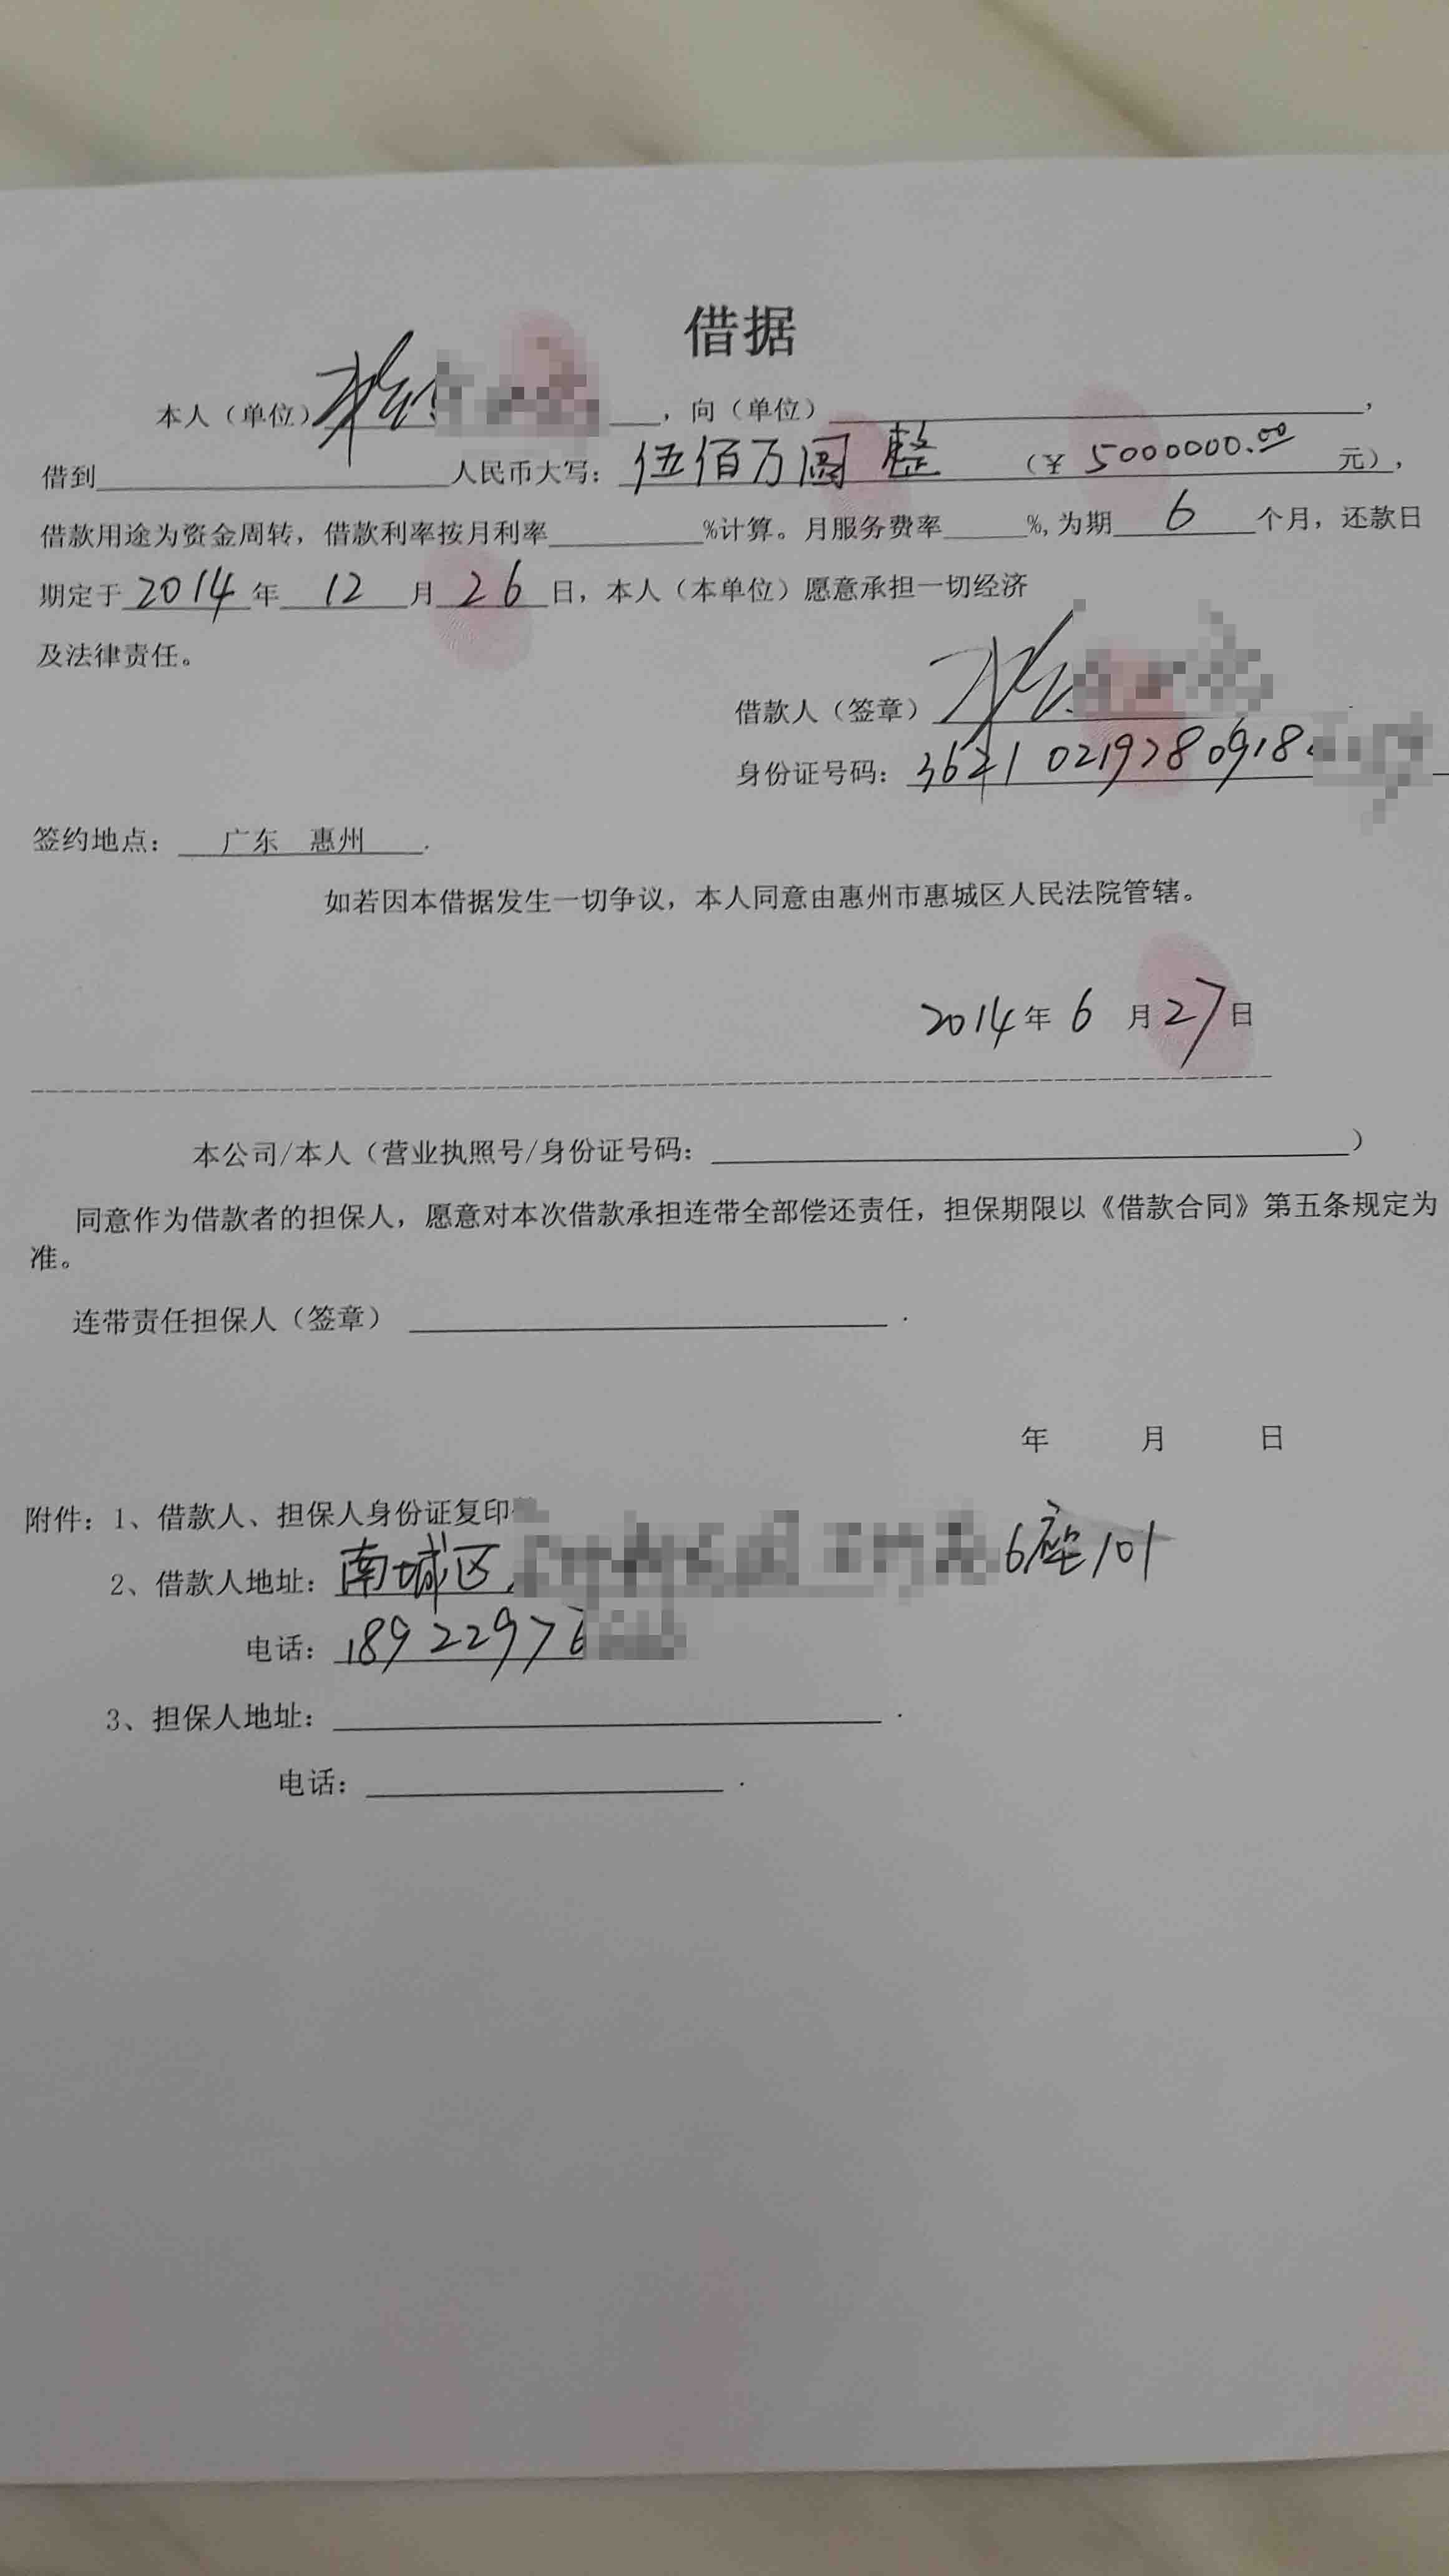 借据
本人（单位），向（单位），
借到人民币大写：伍佰万圆整（¥5000000.00元），
借款用途为资金周转，借款利率按月利率%计算。月服务费率%,为期6个月，还款日
期定于2014年12月26日，本人（本单位）愿意承担一切经济
及法律责任。
借款人（签章）
身份证号码：
签约地点：广东 惠州.
如若因本借据发生一切争议，本人同意由惠州市惠城区人民法院管辖。
2014年6月27日
本公司/本人（营业执照号/身份证号码：）
同意作为借款者的担保人，愿意对本次借款承担连带全部偿还责任，担保期限以《借款合同》第五条规定为
准。
连带责任担保人（签章）.
年 月 日
附件：1、借款人、担保人身份证复印
2、借款人地址：南城区 6座101
电话：1892297
3、担保人地址：.
电话：.